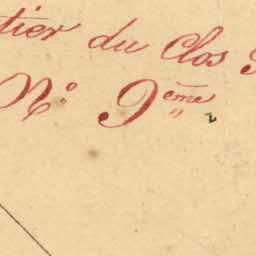 tier du Clos
N° 9ème
2